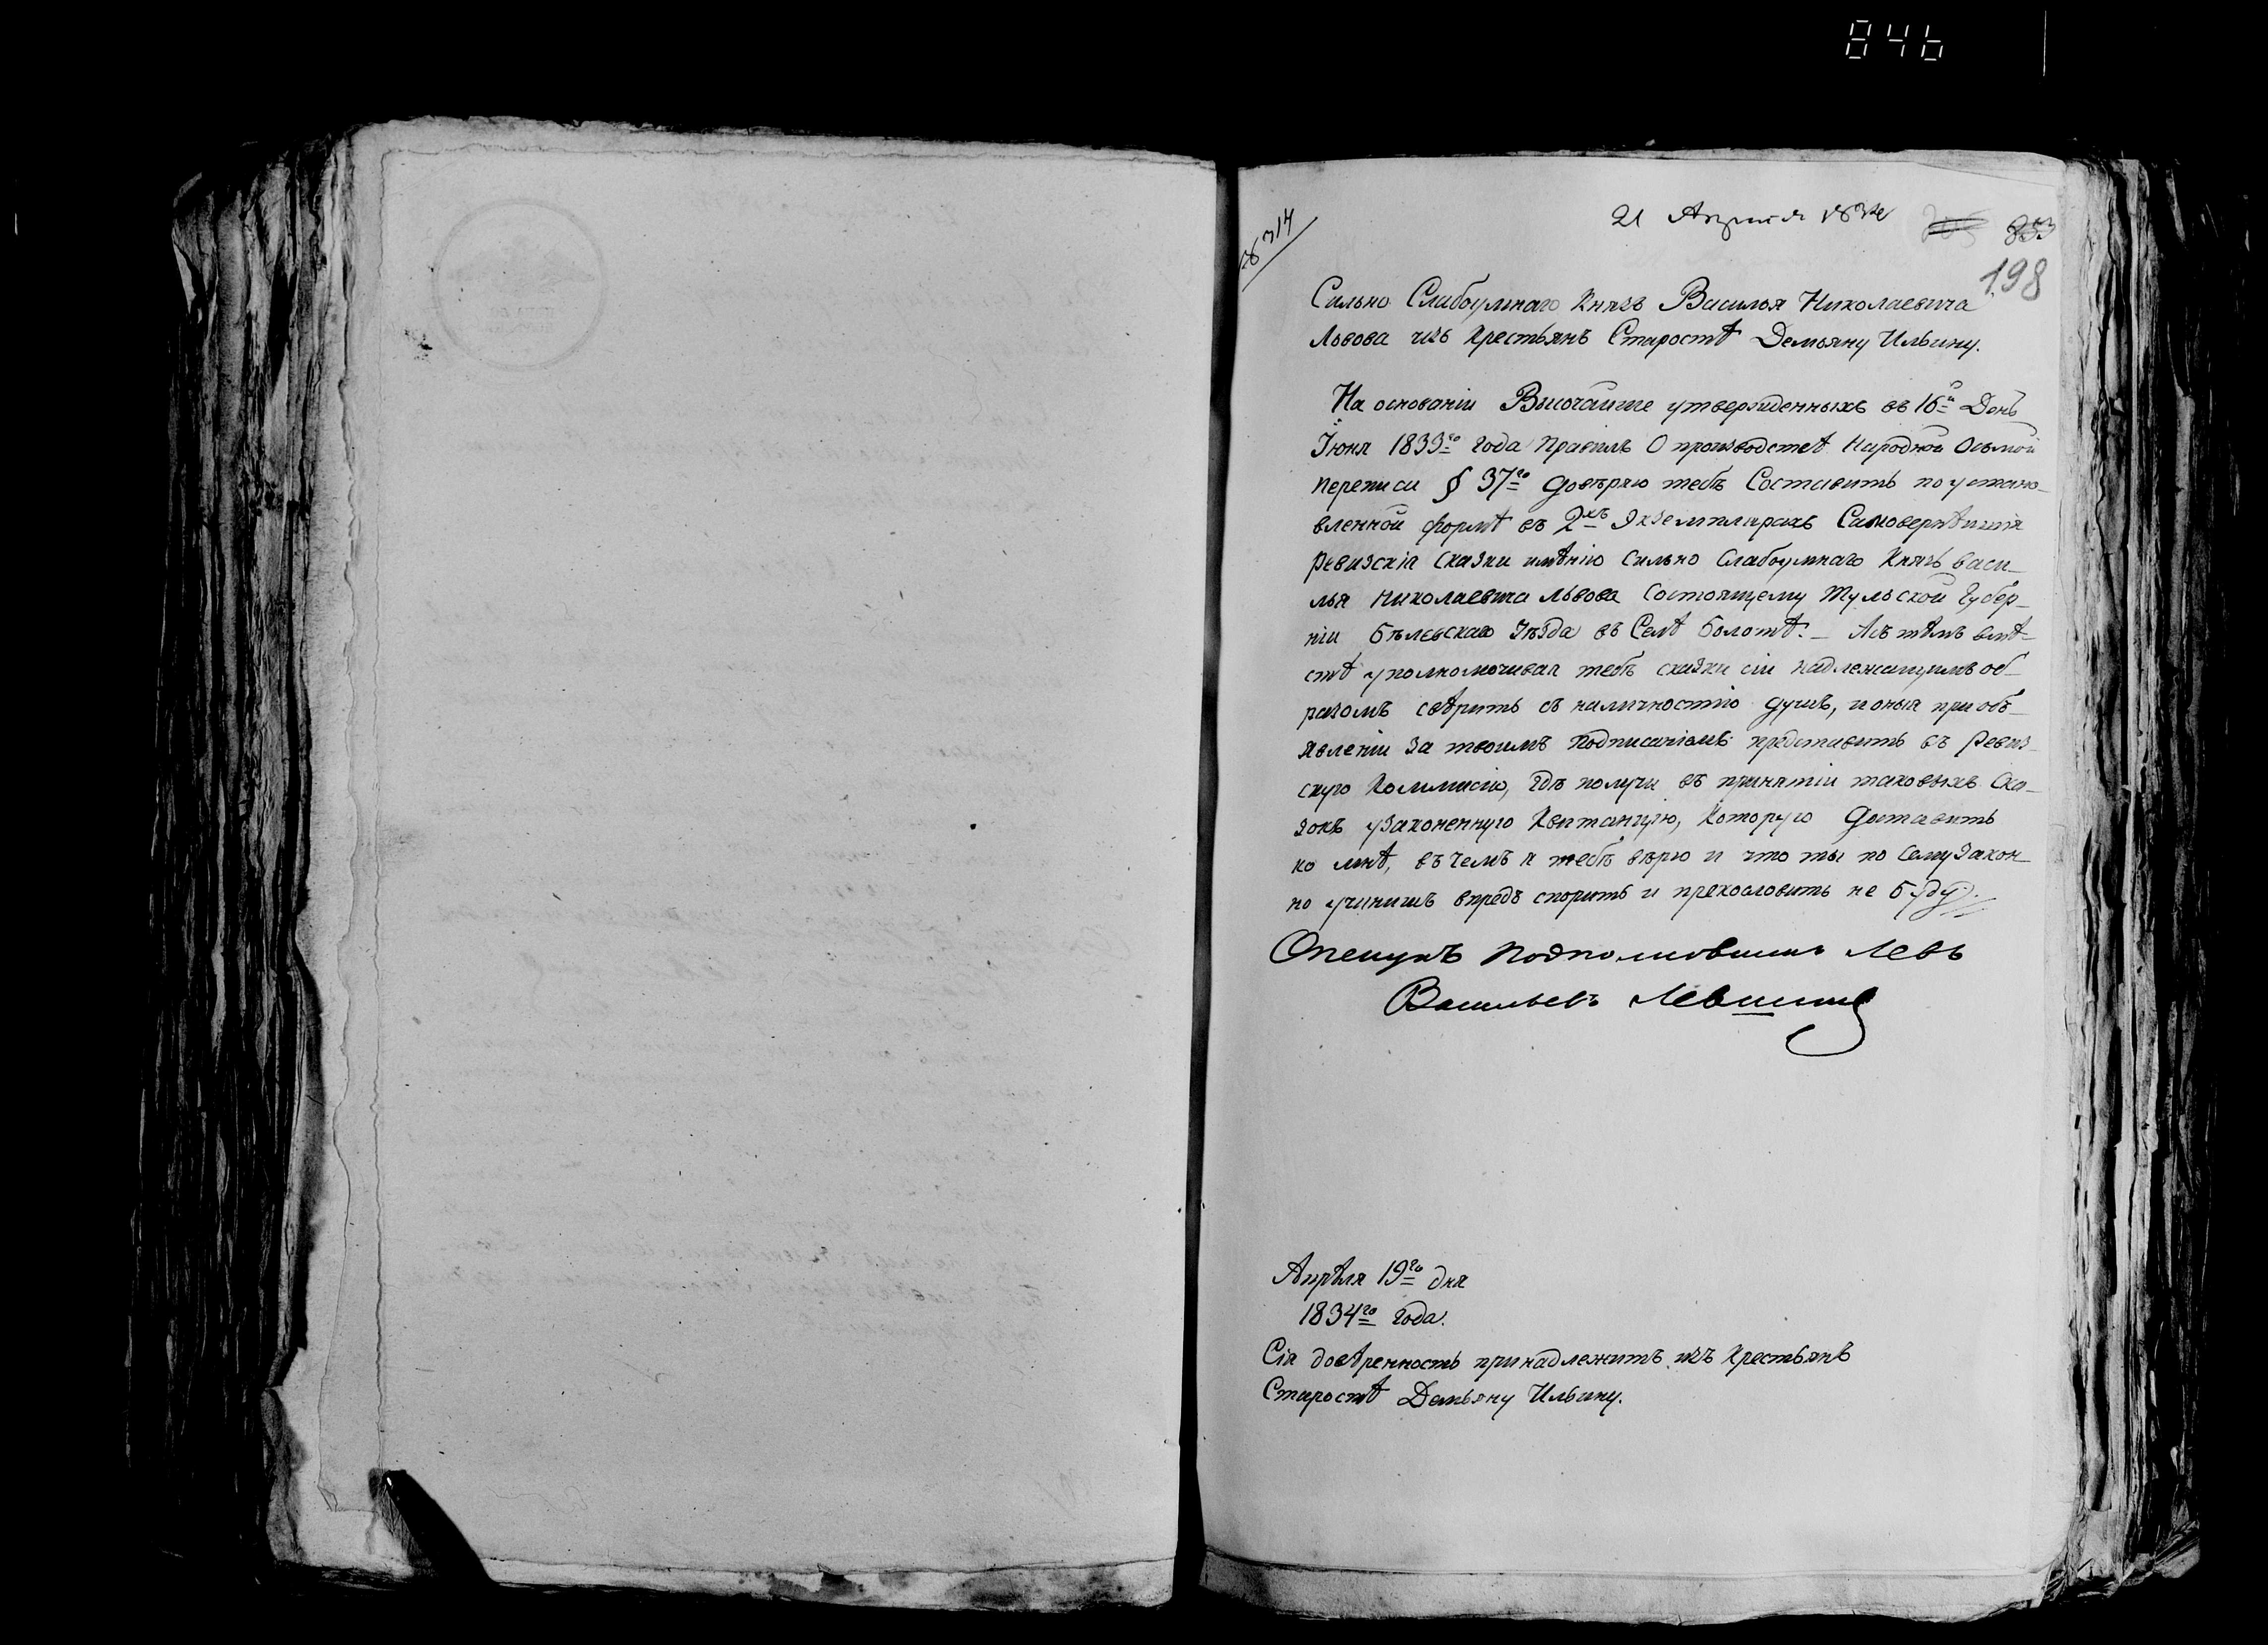 846
21 Апреля 1834
853
198
№ 314
Сильно Слабоумнаго Князь Василья Николаевича
Львова изъ Крестьянъ Старостѣ Демьяну Ильину.
На основаніи Высочайше утвержденныхъ въ 16й День
Іюня 1833го года Правилъ О производствѣ Народной Осьмой
переписи § 37го Довѣряю тебѣ Составить по устано-
вленной формѣ въ 2хъ Экземплярахъ Самовернѣишія
Ревизскія Сказки имѣнію Сильно Слабоумнаго Князь Васи-
лья Николаевича Львова Состоящему Тульской Губер-
ніи Бѣлевскаго Уѣзда въ Селѣ Болотѣ. – А съ тѣмъ вмѣ-
стѣ уполномочивая тебѣ сказки сіи надлежащимъ об-
разомъ свѣрить съ наличностію душъ, и оныя при объ-
явленіи за твоимъ Подписаніемъ представить въ Ревиз-
скую Коммисію, гдѣ получа въ принятіи таковыхъ Ска-
зокъ узаконенную Квитанцію, Которую Доставить
ко мнѣ, въ чемъ я тебѣ вѣрю и что ты по Сему Закон-
но учинишъ впредъ спорить и прекословить не Буду.
Опекунъ Подполковникъ Левъ
Васильевъ Левшинъ
Апрѣля 19го дня
1834го Года.
Сія довѣренность принадлежитъ изъ Крестьянъ
Старостѣ Демьяну Ильину.